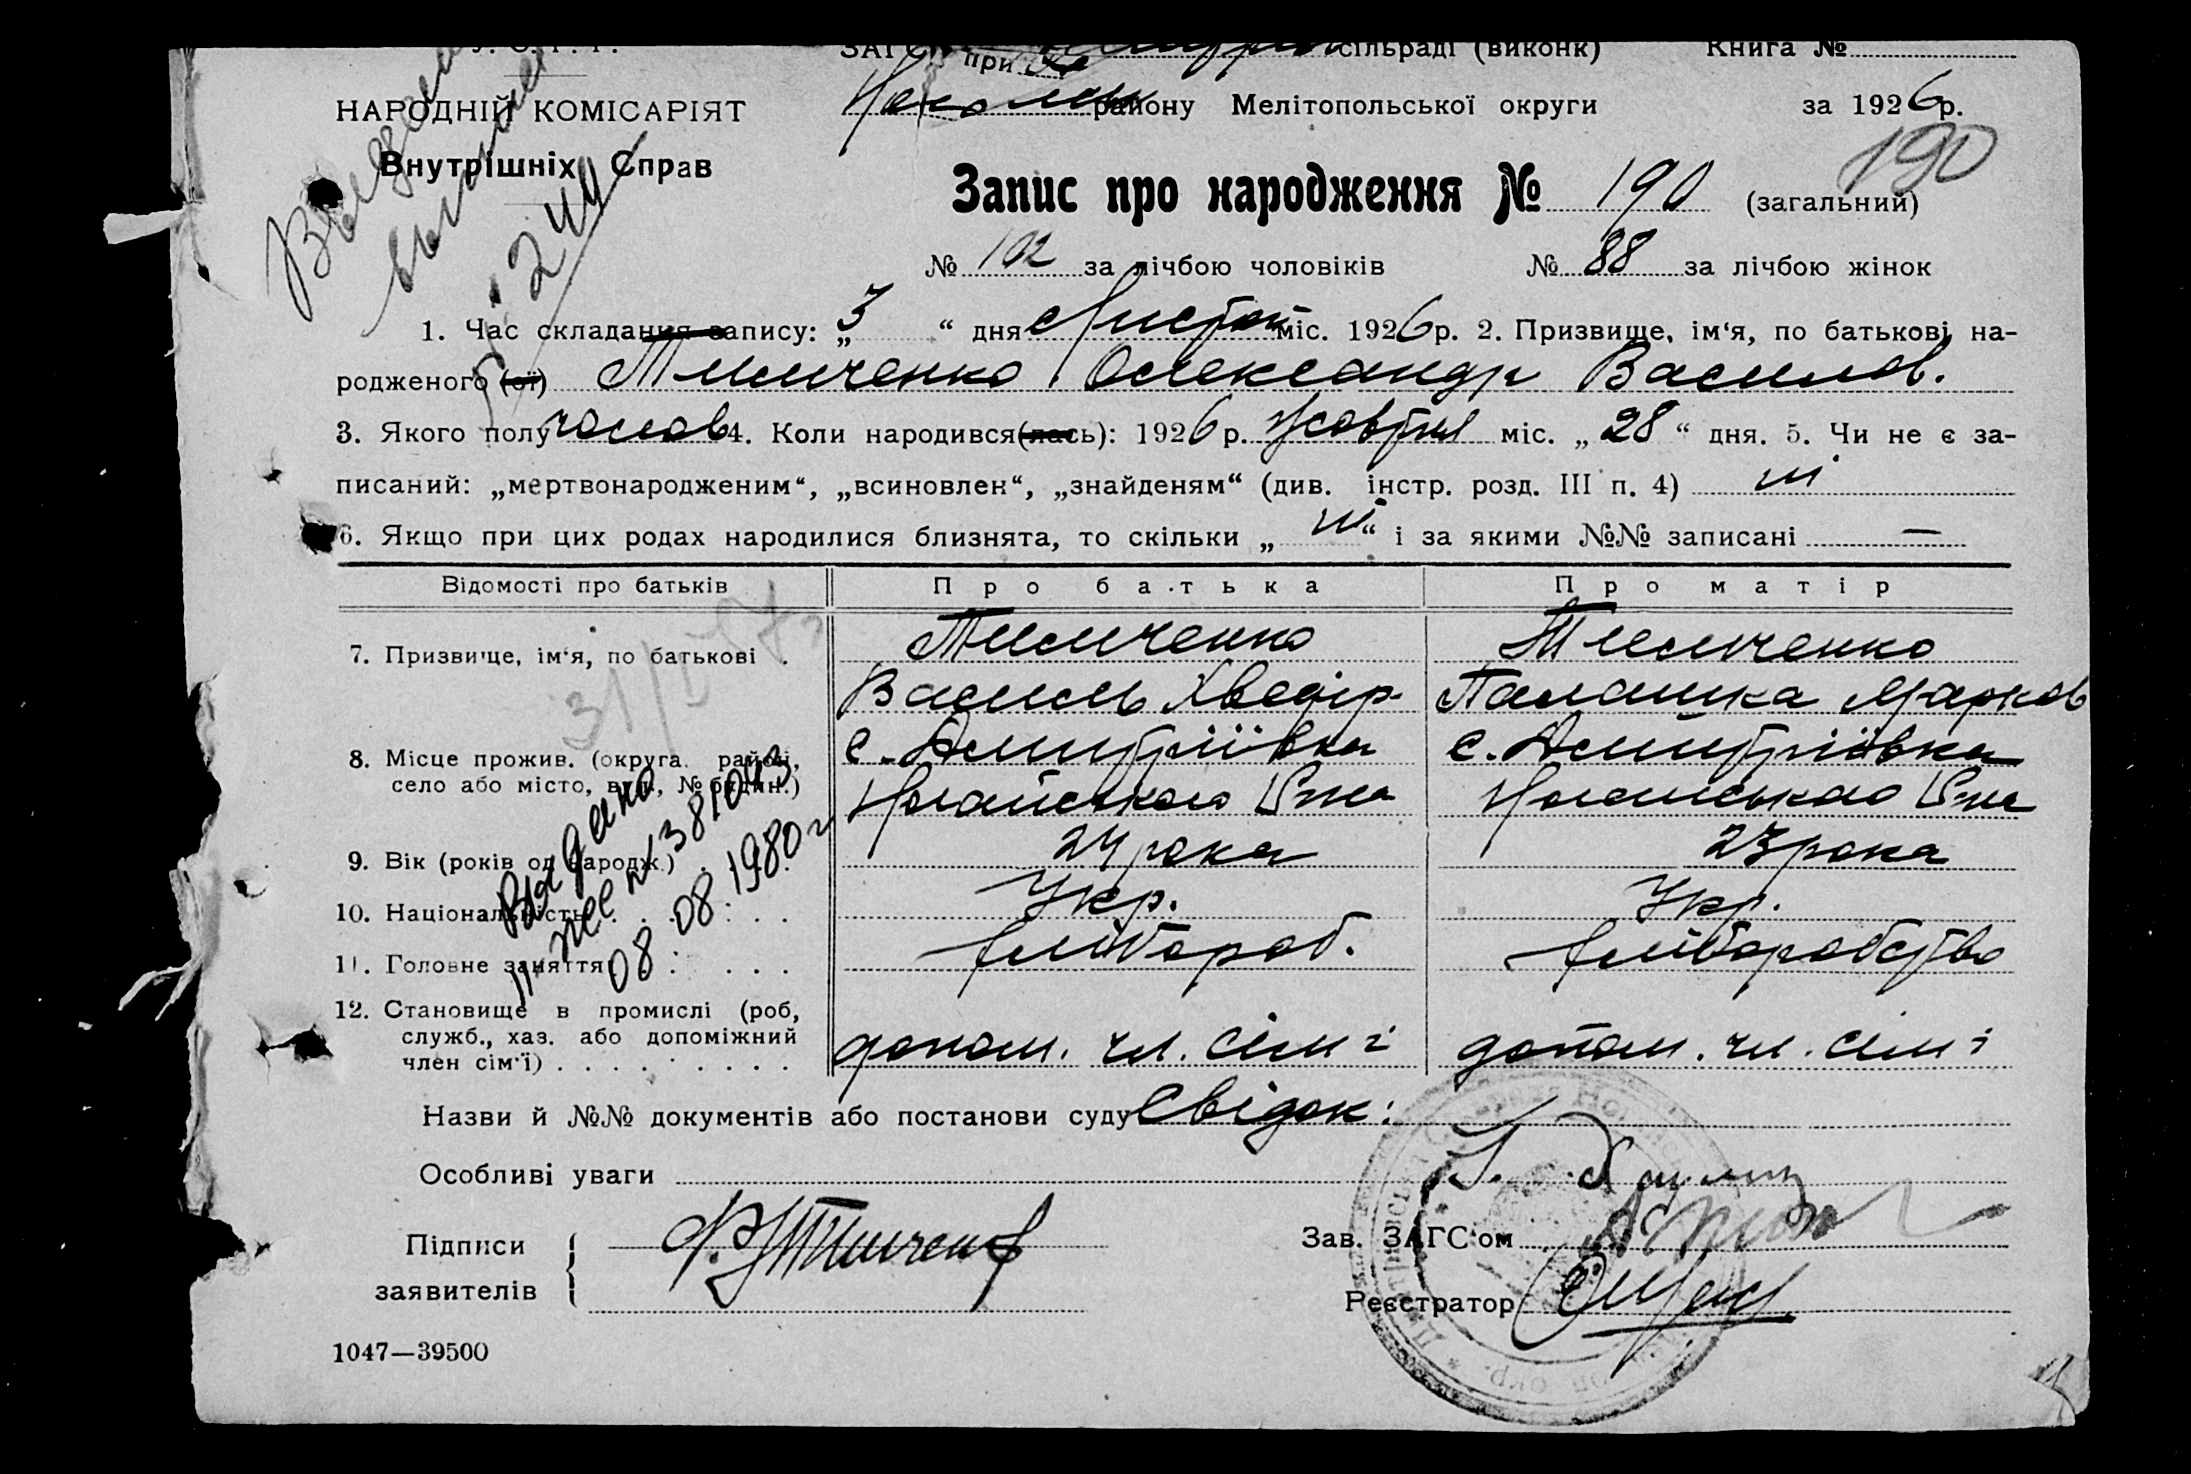 У. С. Р. Р.
ЗАГС при сільраді (виконк) Книга №
НАРОДНІЙ КОМІСАРІЯТ району Мелітопольської округи за 1926 р.
Внутрішніх Справ
190
Запис про народження № 190 (загальний)
244
№ 102 за лічбою чоловіків № 88 за лічбою жінок
1. Час складання запису: „3“ дня Листоп міс. 1926 р. 2. Призвище, ім‘я, по батькові на-
родженого (ої) Тимченко Олександр Василов.
3. Якого полу чолов 4. Коли народився (лась): 1926 р. Жовтня міс. „28“ дня. 5. Чи не є за-
писаний: „мертвонародженим“, „всиновлен“, „знайденям“ (див. інстр. розд. III п. 4) ні
6. Якщо при цих родах народилися близнята, то скільки „ні“ і за якими №№ записані —
Відомості про батьків Про батька Про матір
7. Призвище, ім‘я, по батькові Тимченко Тимченко
Василь Хведір Палашка Марков
8. Місце прожив. (округа, район, с. Дмитріївка с. Дмитріївка
село або місто, вул., № будин.) Ногайського Р-на Ногайського Р-на
9. Вік (років од народж.) 24 рока 23 рока
10. Національність Укр. Укр.
11. Головне заняття хлібороб. хліборобство
12. Становище в промислі (роб,
служб., хаз. або допоміжний
член сім‘ї) допом. чл. сімї допом. чл. сімї
Выдано
08.08.1980 г
Назви й №№ документів або постанови суду Свідок:
Особливі уваги
Підписи
заявителів
Зав. ЗАГС‘ом
Реєстратор
1047—39500